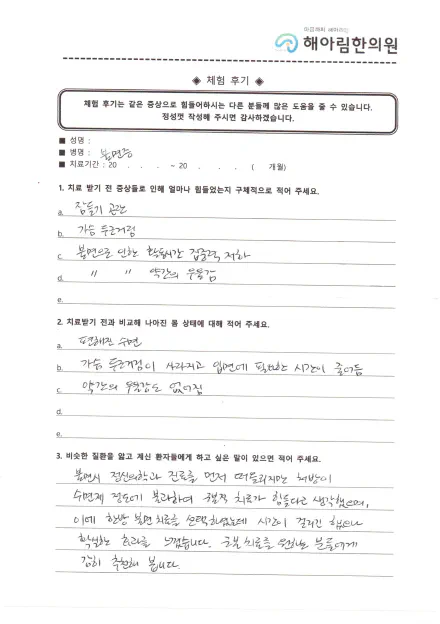 해아림한의원
◈ 체험 후기 ◈
체험 후기는 같은 증상으로 힘들어하시는 다른 분들께 많은 도움을 줄 수 있습니다.
정성껏 작성해 주시면 감사하겠습니다.
■ 성명 :
■ 병명 : 불면증
■ 치료기간 : 20 . . . ~ 20 . . . ( 개월)
1. 치료 받기 전 증상들로 인해 얼마나 힘들었는지 구체적으로 적어 주세요.
a. 잠들기 곤란
b. 가슴 두근거림
c. 불면으로 인한 활동시간 집중력 저하
d. 〃 〃 약간의 우울감
e.
2. 치료받기 전과 비교해 나아진 몸 상태에 대해 적어 주세요.
a. 편해진 수면
b. 가슴 두근거림이 사라지고 입면에 필요한 시간이 줄어듬
c. 약간의 우울감도 없어짐
d.
e.
3. 비슷한 질환을 앓고 계신 환자들에게 하고 싶은 말이 있으면 적어 주세요.
불면시 정신의학과 진료를 먼저 떠올리지만 처방이
수면제 정도에 불과하여 근본적 치료가 힘들다고 생각했으며,
이에 한방 불면 치료를 선택하였는데 시간이 걸리긴 했으나
확실한 효과를 느꼈습니다. 근본치료를 원하는 분들에게
감히 추천해 봅니다.